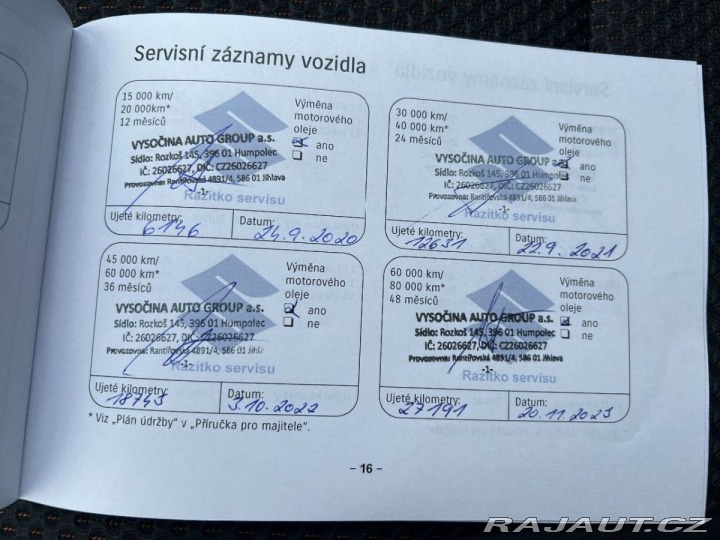 Servisní záznamy vozidla
15 000 km/
20 000km*
12 měsíců
Výměna
motorového
oleje
ano
ne
VYSOČINA AUTO GROUP a.s.
Sídlo: Rozkoš 145, 396 01 Humpolec
IČ: 26026627, DIČ: CZ26026627
Provozovna: Rantířovská 4891/4, 586 01 Jihlava
-1-
Razítko servisu
Ujeté kilometry:
6146
Datum:
24.9.2020
30 000 km/
40 000 km*
24 měsíců
Výměna
motorového
oleje
ano
ne
VYSOČINA AUTO GROUP a.s.
Sídlo: Rozkoš 145, 396 01 Humpolec
IČ: 26026627, DIČ: CZ26026627
Provozovna: Rantířovská 4891/4, 586 01 Jihlava
-1-
Razítko servisu
Ujeté kilometry:
12631
Datum:
22.9.2021
45 000 km/
60 000 km*
36 měsíců
Výměna
motorového
oleje
ano
ne
VYSOČINA AUTO GROUP a.s.
Sídlo: Rozkoš 145, 396 01 Humpolec
IČ: 26026627, DIČ: CZ26026627
Provozovna: Rantířovská 4891/4, 586 01 Jihlava
-1-
Razítko servisu
Ujeté kilometry:
18743
Datum:
3.10.2022
60 000 km/
80 000 km*
48 měsíců
Výměna
motorového
oleje
ano
ne
VYSOČINA AUTO GROUP a.s.
Sídlo: Rozkoš 145, 396 01 Humpolec
IČ: 26026627, DIČ: CZ26026627
Provozovna: Rantířovská 4891/4, 586 01 Jihlava
-1-
Razítko servisu
Ujeté kilometry:
27191
Datum:
20.11.2023
* Viz „Plán údržby“ v „Příručka pro majitele“.
- 16 -
RAJAUT.CZ